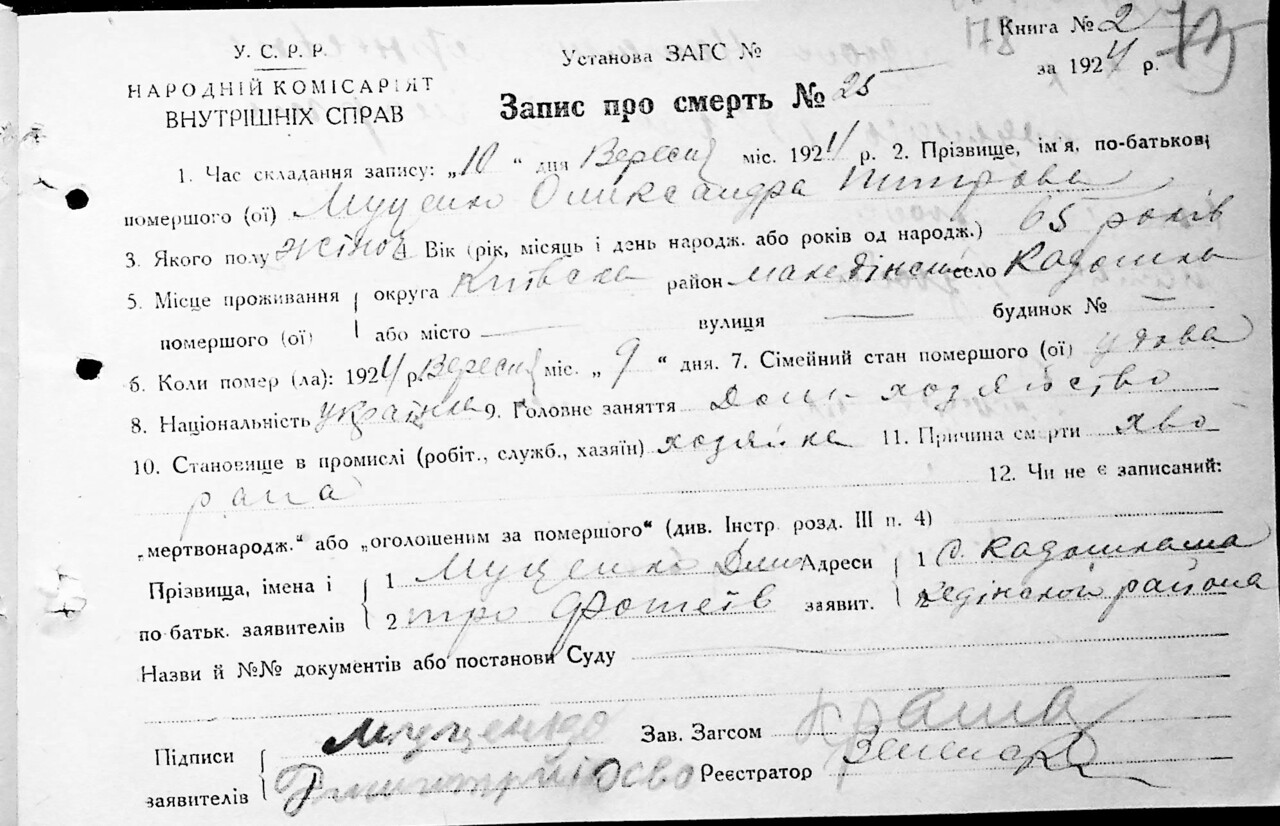 Книга № 2
У. С. Р. Р.
Установа ЗАГС №
за 1924 р.
НАРОДНІЙ КОМІСАРІЯТ
ВНУТРІШНІХ СПРАВ
Запис про смерть № 25
1. Час складання запису: „10" дня Вересня міс. 1924 р. 2. Прізвище, ім'я, по-батькові
помершого (ої) Муценко Олександра Питрова
3. Якого полу жіноч 4. Вік (рік, місяць і день народж. або років од народж.) 65 років
5. Місце проживання округа Київска район село
помершого (ої) або місто — вулиця — будинок № —
6. Коли помер (ла): 1924 р. Вересня міс. „9" дня. 7. Сімейний стан помершого (ої) удова
8. Національність україн 9. Головне заняття Дом. хозяйство
10. Становище в промислі (робіт., служб., хазяїн) хозяйка 11. Причина смерти хво
рала
12. Чи не є записаний:
„мертвонародж." або „оголошеним за помершого" (див. Інстр. розд. III п. 4)
Прізвища, імена і 1 Муценко Дми Адреси 1 с.
по батьк. заявителів 2 тро Фотеїв заявит. району
Назви й №№ документів або постанови Суду
Підписи Муценко Зав. Загсом
заявителів Реєстратор